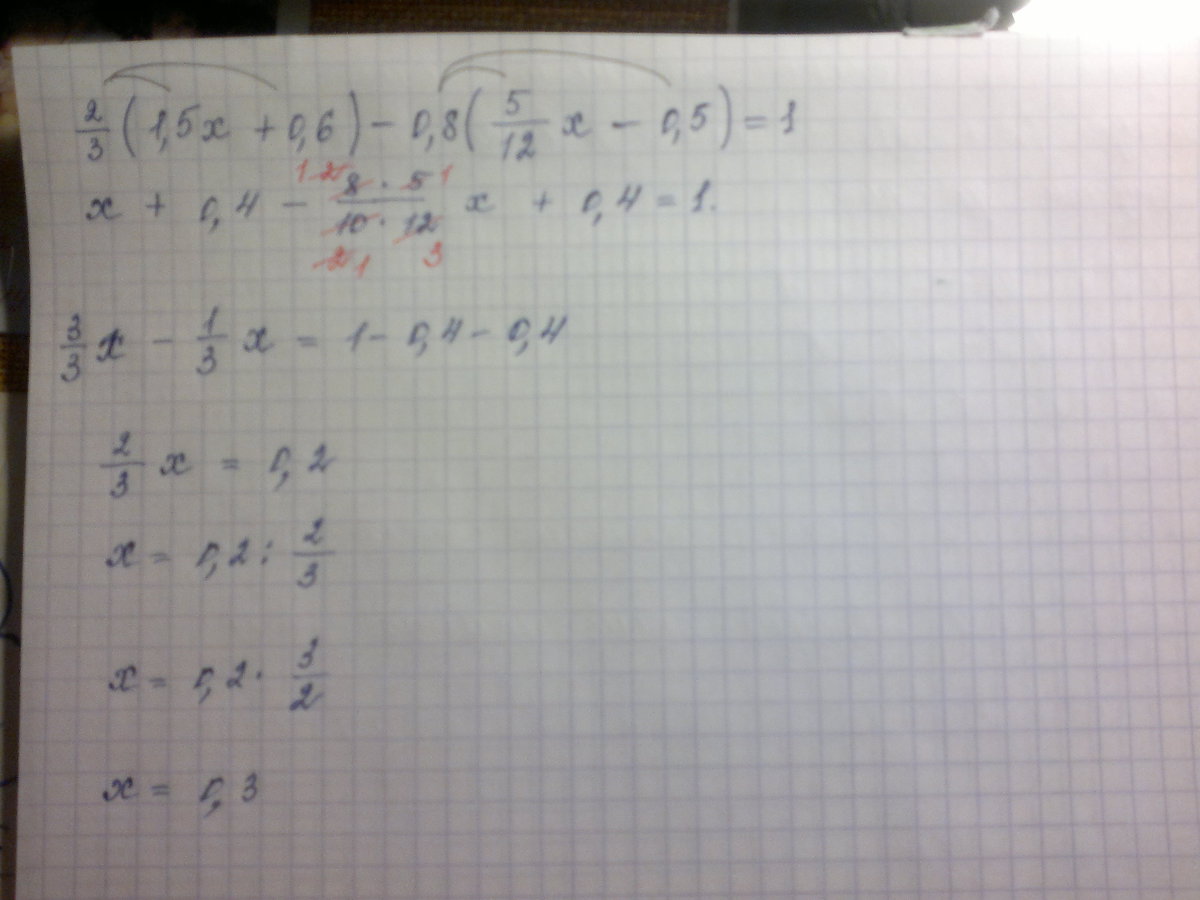 2/3 (1,5x + 0,6) - 0,8 (5/12 x - 0,5) = 1
x + 0,4 - 8·5/10·12 x + 0,4 = 1.
3/3 x - 1/3 x = 1 - 0,4 - 0,4
2/3 x = 0,2
x = 0,2 : 2/3
x = 0,2 · 3/2
x = 0,3